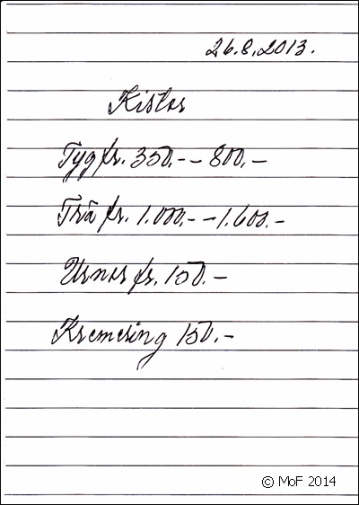 26.8.2013.
Kistor
Tyg fr. 350.- - 800.-
Trä fr. 1.000.- - 1.600.-
Urnor fr. 150.-
Kremering 150.-
© MoF 2014